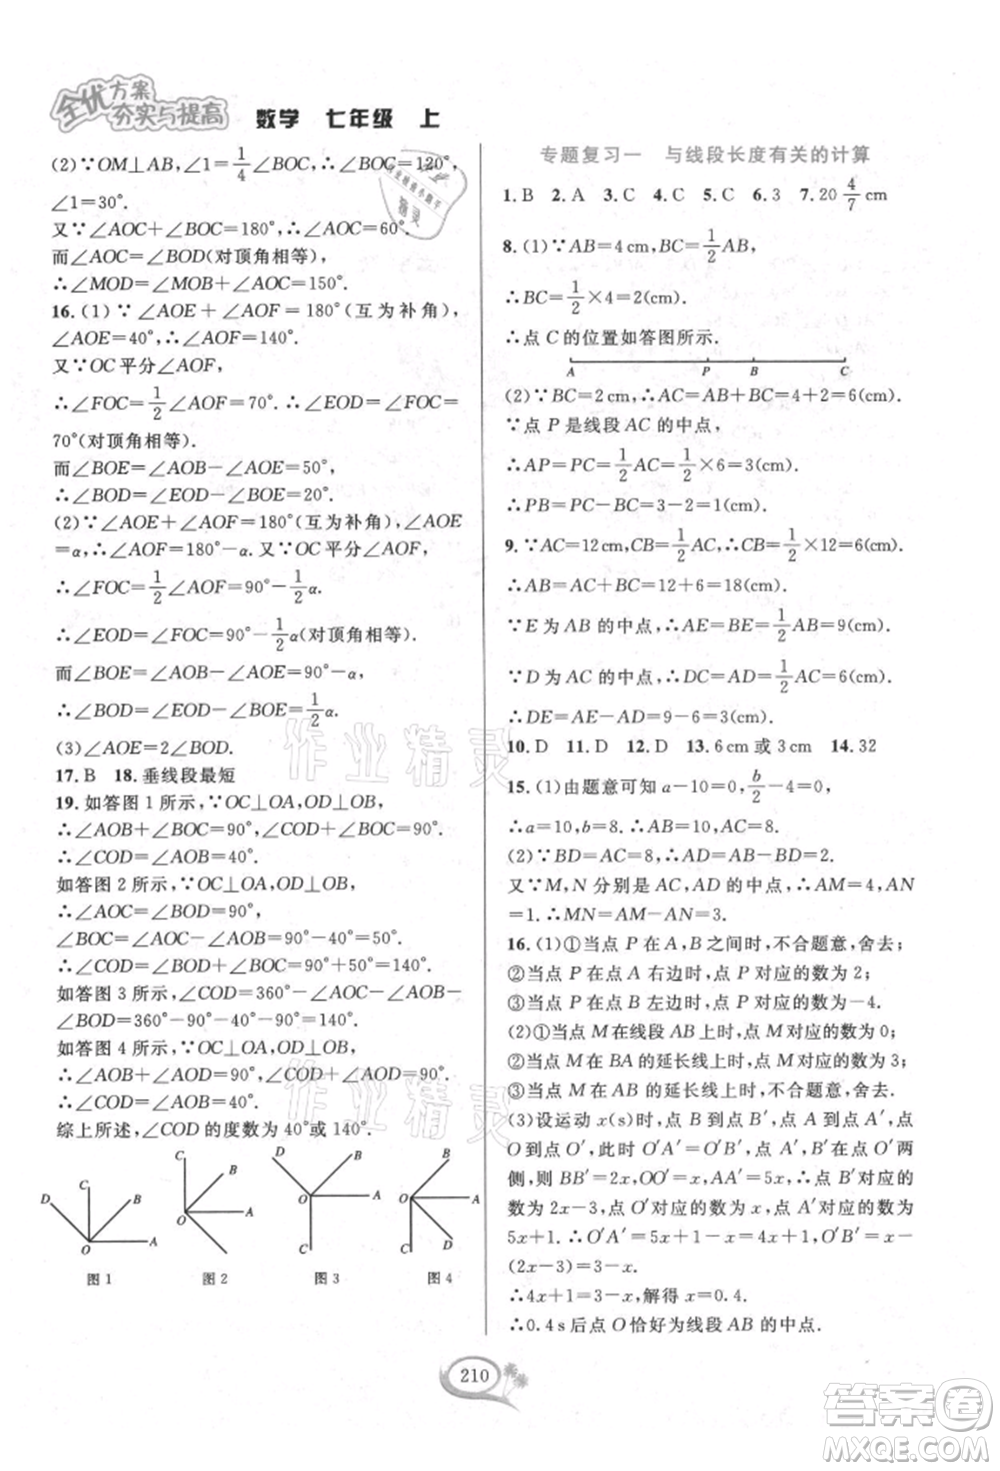 全优方案
夯实与提高
数学 七年级 上
(2)∵OM⊥AB,∠1=1/4∠BOC,∴∠BOC=120°,
∠1=30°.
又∵∠AOC+∠BOC=180°,∴∠AOC=60°.
而∠AOC=∠BOD(对顶角相等),
∴∠MOD=∠MOC+∠AOC=150°.
16.(1)∵∠AOE+∠AOF=180°(互为补角),
∠AOE=40°,∴∠AOF=140°.
又∵OC平分∠AOF,
∴∠FOC=1/2∠AOF=70°.∴∠EOD=∠FOC=
70°(对顶角相等).
而∠BOE=∠AOB-∠AOE=50°,
∴∠BOD=∠EOD-∠BOE=20°.
(2)∵∠AOE+∠AOF=180°(互为补角),∠AOE
=α,∴∠AOF=180°-α.又∵OC平分∠AOF,
∴∠FOC=1/2∠AOF=90°-1/2α.
∴∠EOD=∠FOC=90°-1/2α(对顶角相等).
而∠BOE=∠AOB-∠AOE=90°-α,
∴∠BOD=∠EOD-∠BOE=1/2α.
(3)∠AOE=2∠BOD.
17.B 18.垂线段最短
19.如答图1所示,∵OC⊥OA,OD⊥OB,
∴∠AOB+∠BOC=90°,∠BOC+∠COD=90°.
∴∠COD=∠AOB=40°.
如答图2所示,∵OC⊥OA,OD⊥OB,
∴∠AOC=90°,∠BOD=90°,
∠BOC=∠AOC-∠AOB=50°.
∴∠COD=∠BOD+∠BOC=90°+50°=140°.
如答图3所示,∠COD=360°-∠AOC-∠AOB-
∠BOD=360°-90°-40°-90°=140°.
如答图4所示,∵OC⊥OA,OD⊥OB,
∴∠AOD+∠AOB=90°,∠COD+∠AOD=90°.
∴∠COD=∠AOB=40°.
综上所述,∠COD的度数为40°或140°.
D C B O A
图1
C B O A D
图2
D B O A C
图3
C B O A D
图4
专题复习一 与线段长度有关的计算
1.B 2.A 3.C 4.C 5.C 6.3 7.20 4/7 cm
8.(1)∵AB=4cm,BC=1/2AB,
∴BC=1/2×4=2(cm).
∴点C的位置如答图所示.
A P B C
(2)∵BC=2cm,∴AC=AB+BC=4+2=6(cm).
∵点P是线段AC的中点,
∴AP=PC=1/2AC=1/2×6=3(cm).
∴PB=PC-BC=3-2=1(cm).
9.∵AC=12cm,CB=1/2AC,∴CB=1/2×12=6(cm).
∴AB=AC+BC=12+6=18(cm).
∵E为AB的中点,∴AE=BE=1/2AB=9(cm).
∵D为AC的中点,∴DC=AD=1/2AC=6(cm).
∴DE=AE-AD=9-6=3(cm).
10.D 11.D 12.D 13.6cm或3cm 14.32
15.(1)由题意可知a-10=0,b/2-4=0,
∴a=10,b=8.∴AB=10,AC=8.
(2)∵BD=AC=8,∴AD=AB-BD=2.
又∵M,N分别是AC,AD的中点,∴AM=4,AN
=1.∴MN=AM-AN=3.
16.(1)①当点P在A,B之间时,不合题意,舍去;
②当点P在点A右边时,点P对应的数为2;
③当点P在点B左边时,点P对应的数为-4.
(2)①当点M在线段AB上时,点M对应的数为0;
②当点M在BA的延长线上时,点M对应的数为3;
③当点M在AB的延长线上时,不合题意,舍去.
(3)设运动x(s)时,点B到点B′,点A到点A′,点
O到点O′,则O′A′=O′B′,点A′,B′在点O′两
侧,则BB′=2x,OO′=x,AA′=5x,∴点B′对应的
数为2x-3,点O′对应的数为x,点A′对应的数为
5x+1.∴O′A′=5x+1-x=4x+1,O′B′=x-
(2x-3)=3-x.
∴4x+1=3-x,解得x=0.4.
∴0.4s后点O恰好为线段AB的中点.
210
作业精灵
作业精灵
答案圈
MXQE.COM